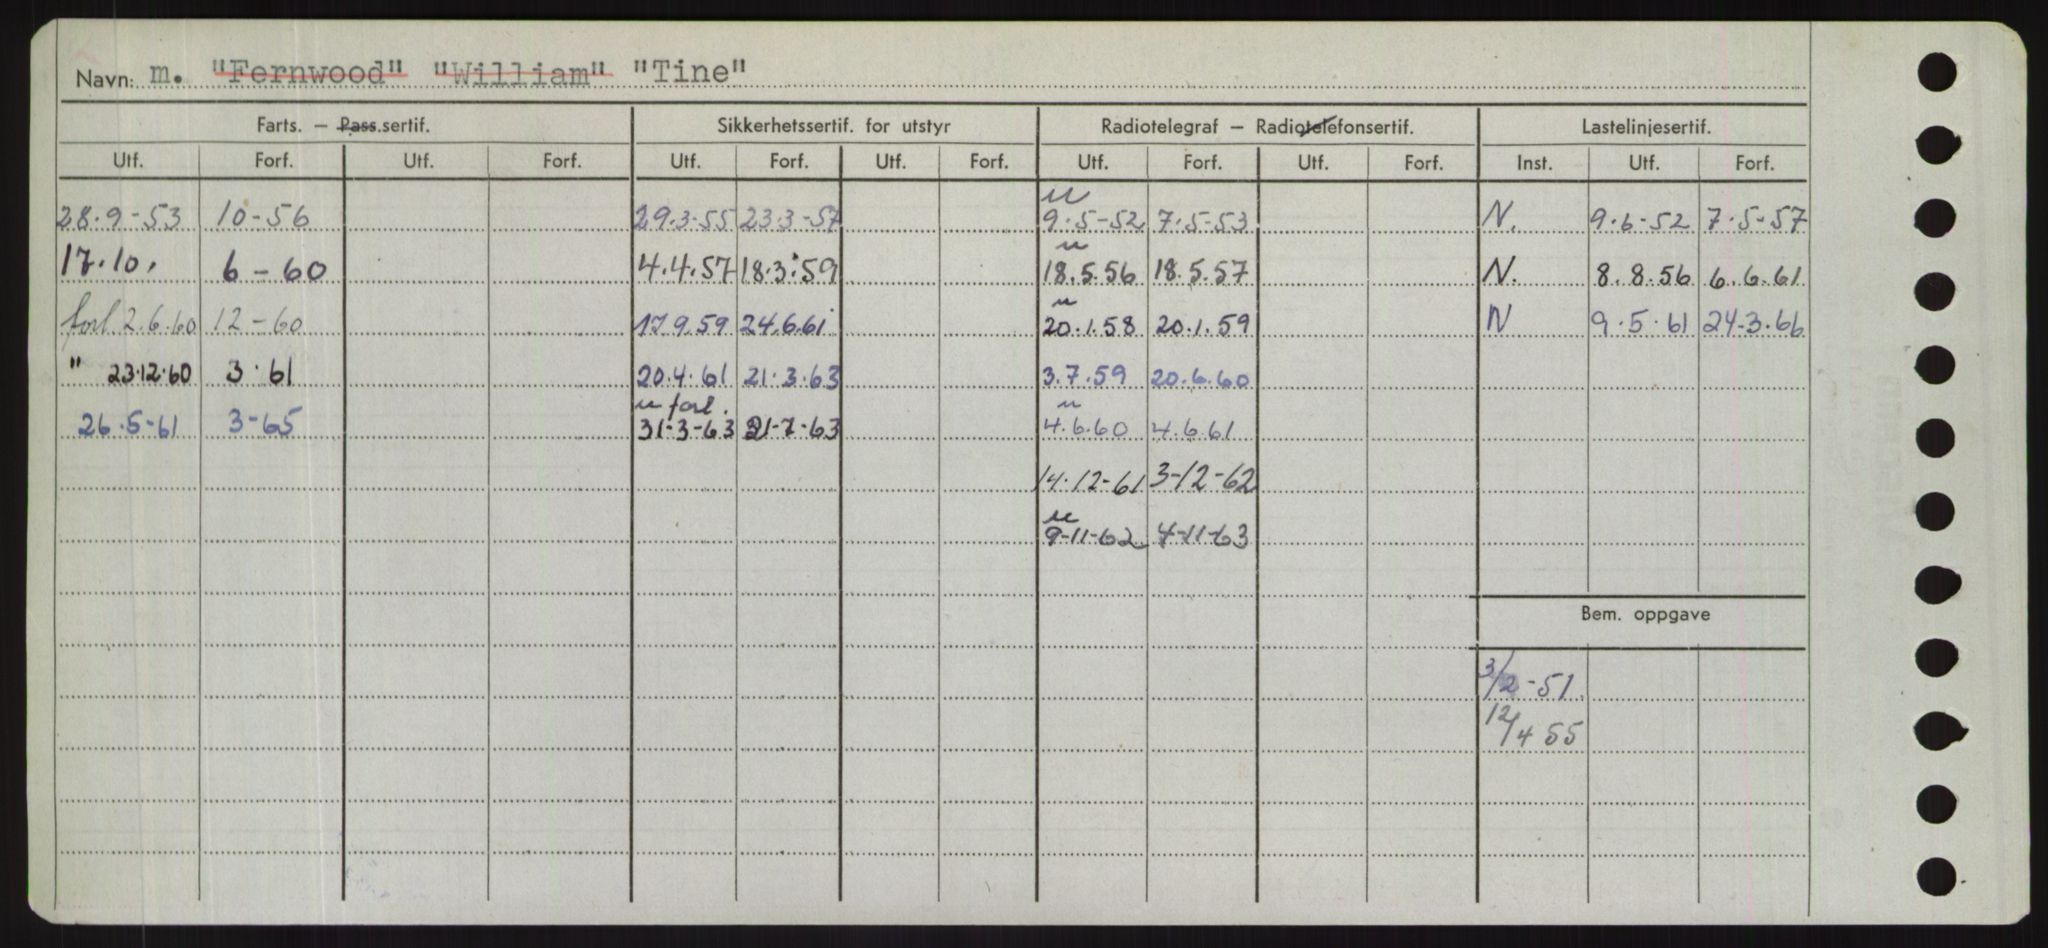 Navn: m. "Fernwood" "William" "Tine"
Farts. — Pass.sertif. Sikkerhetssertif. for utstyr Radiotelegraf — Radiotelefonsertif. Lastelinjesertif.
Utf. Forf. Utf. Forf. Utf. Forf. Utf. Forf. Utf. Forf. Utf. Forf. Inst. Utf. Forf.
u
28.9-53 10-56 29.3-55 23.3-57 9.5-52 7.5-53 N. 9.6-52 7.5-57
u
17.10. 6-60 4.4.57 18.3.59 18.5.56 18.5.57 N. 8.8.56 6.6.61
u
forl 2.6.60 12-60 17.9.59 24.6.61 20.1.58 20.1.59 N 9.5.61 24.3.66
" 23.12.60 3.61 20.4.61 21.3.63 3.7.59 20.6.60
u forl. u
26.5-61 3-65 31-3-63 21-7-63 4.6.60 4.6.61
14.12-61 3-12-62
u
9-11-62 4-11-63
Bem. oppgave
3/2-51
12/4 55